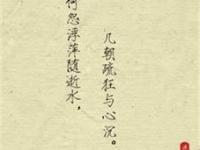 何怨浮萍随逝水，
几朝疏狂与心沉。